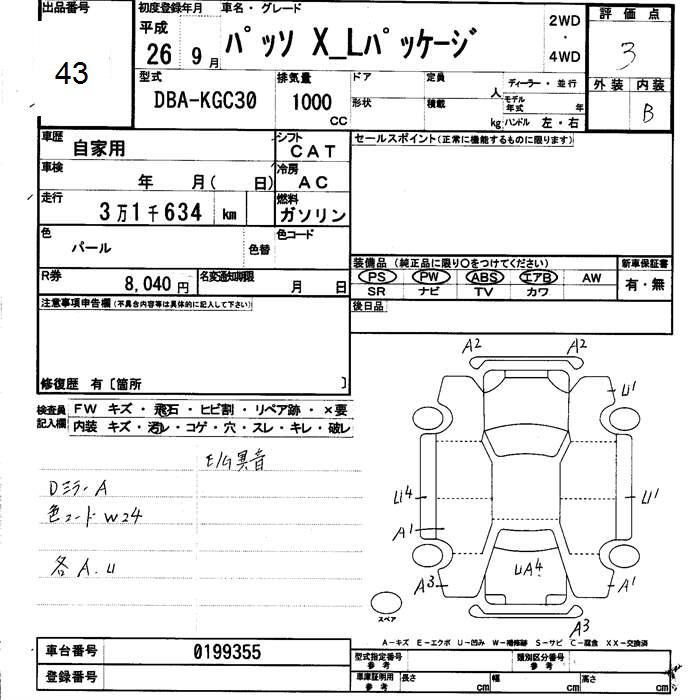 出品番号
43
初度登録年月
平成
26 9月
車名・グレード
パッソ X_Lパッケージ
2WD
・
4WD
評価点
3
外装 内装
B
型式
DBA-KGC30
排気量
1000
CC
ドア
定員
人
ディーラー・並行
形状
積載
kg
モデル年式 年
ハンドル 左・右
車歴
自家用
シフト
CAT
車検
年 月( 日)
冷房
AC
走行
3万1千634 km
燃料
ガソリン
色
パール
色替
色コード
R券
8,040円
名変通知期限
月 日
セールスポイント(正常に機能するものに限ります)
装備品 (純正品に限り○をつけてください)
PS PW ABS エアB AW
SR ナビ TV カワ
新車保証書
有・無
後日品
注意事項申告欄(不具合内容等は具体的に記入して下さい)
修復歴 有〔箇所 〕
検査員記入欄
FW キズ・飛石・ヒビ割・リペア跡・×要
内装 キズ・汚レ・コゲ・穴・スレ・キレ・破レ
E/G異音
Dミラー A
色コード W24
各 A.U
A2 A2
U1
U4 U1
A1
UA4
A3 A1
A3
スペア
A-キズ E-エクボ U-凹み W-補修跡 S-サビ C-腐食 XX-交換済
車台番号
0199355
登録番号
型式指定番号
参考
類別区分番号
参考
車庫証明用
参考
長さ cm
幅 cm
高さ cm